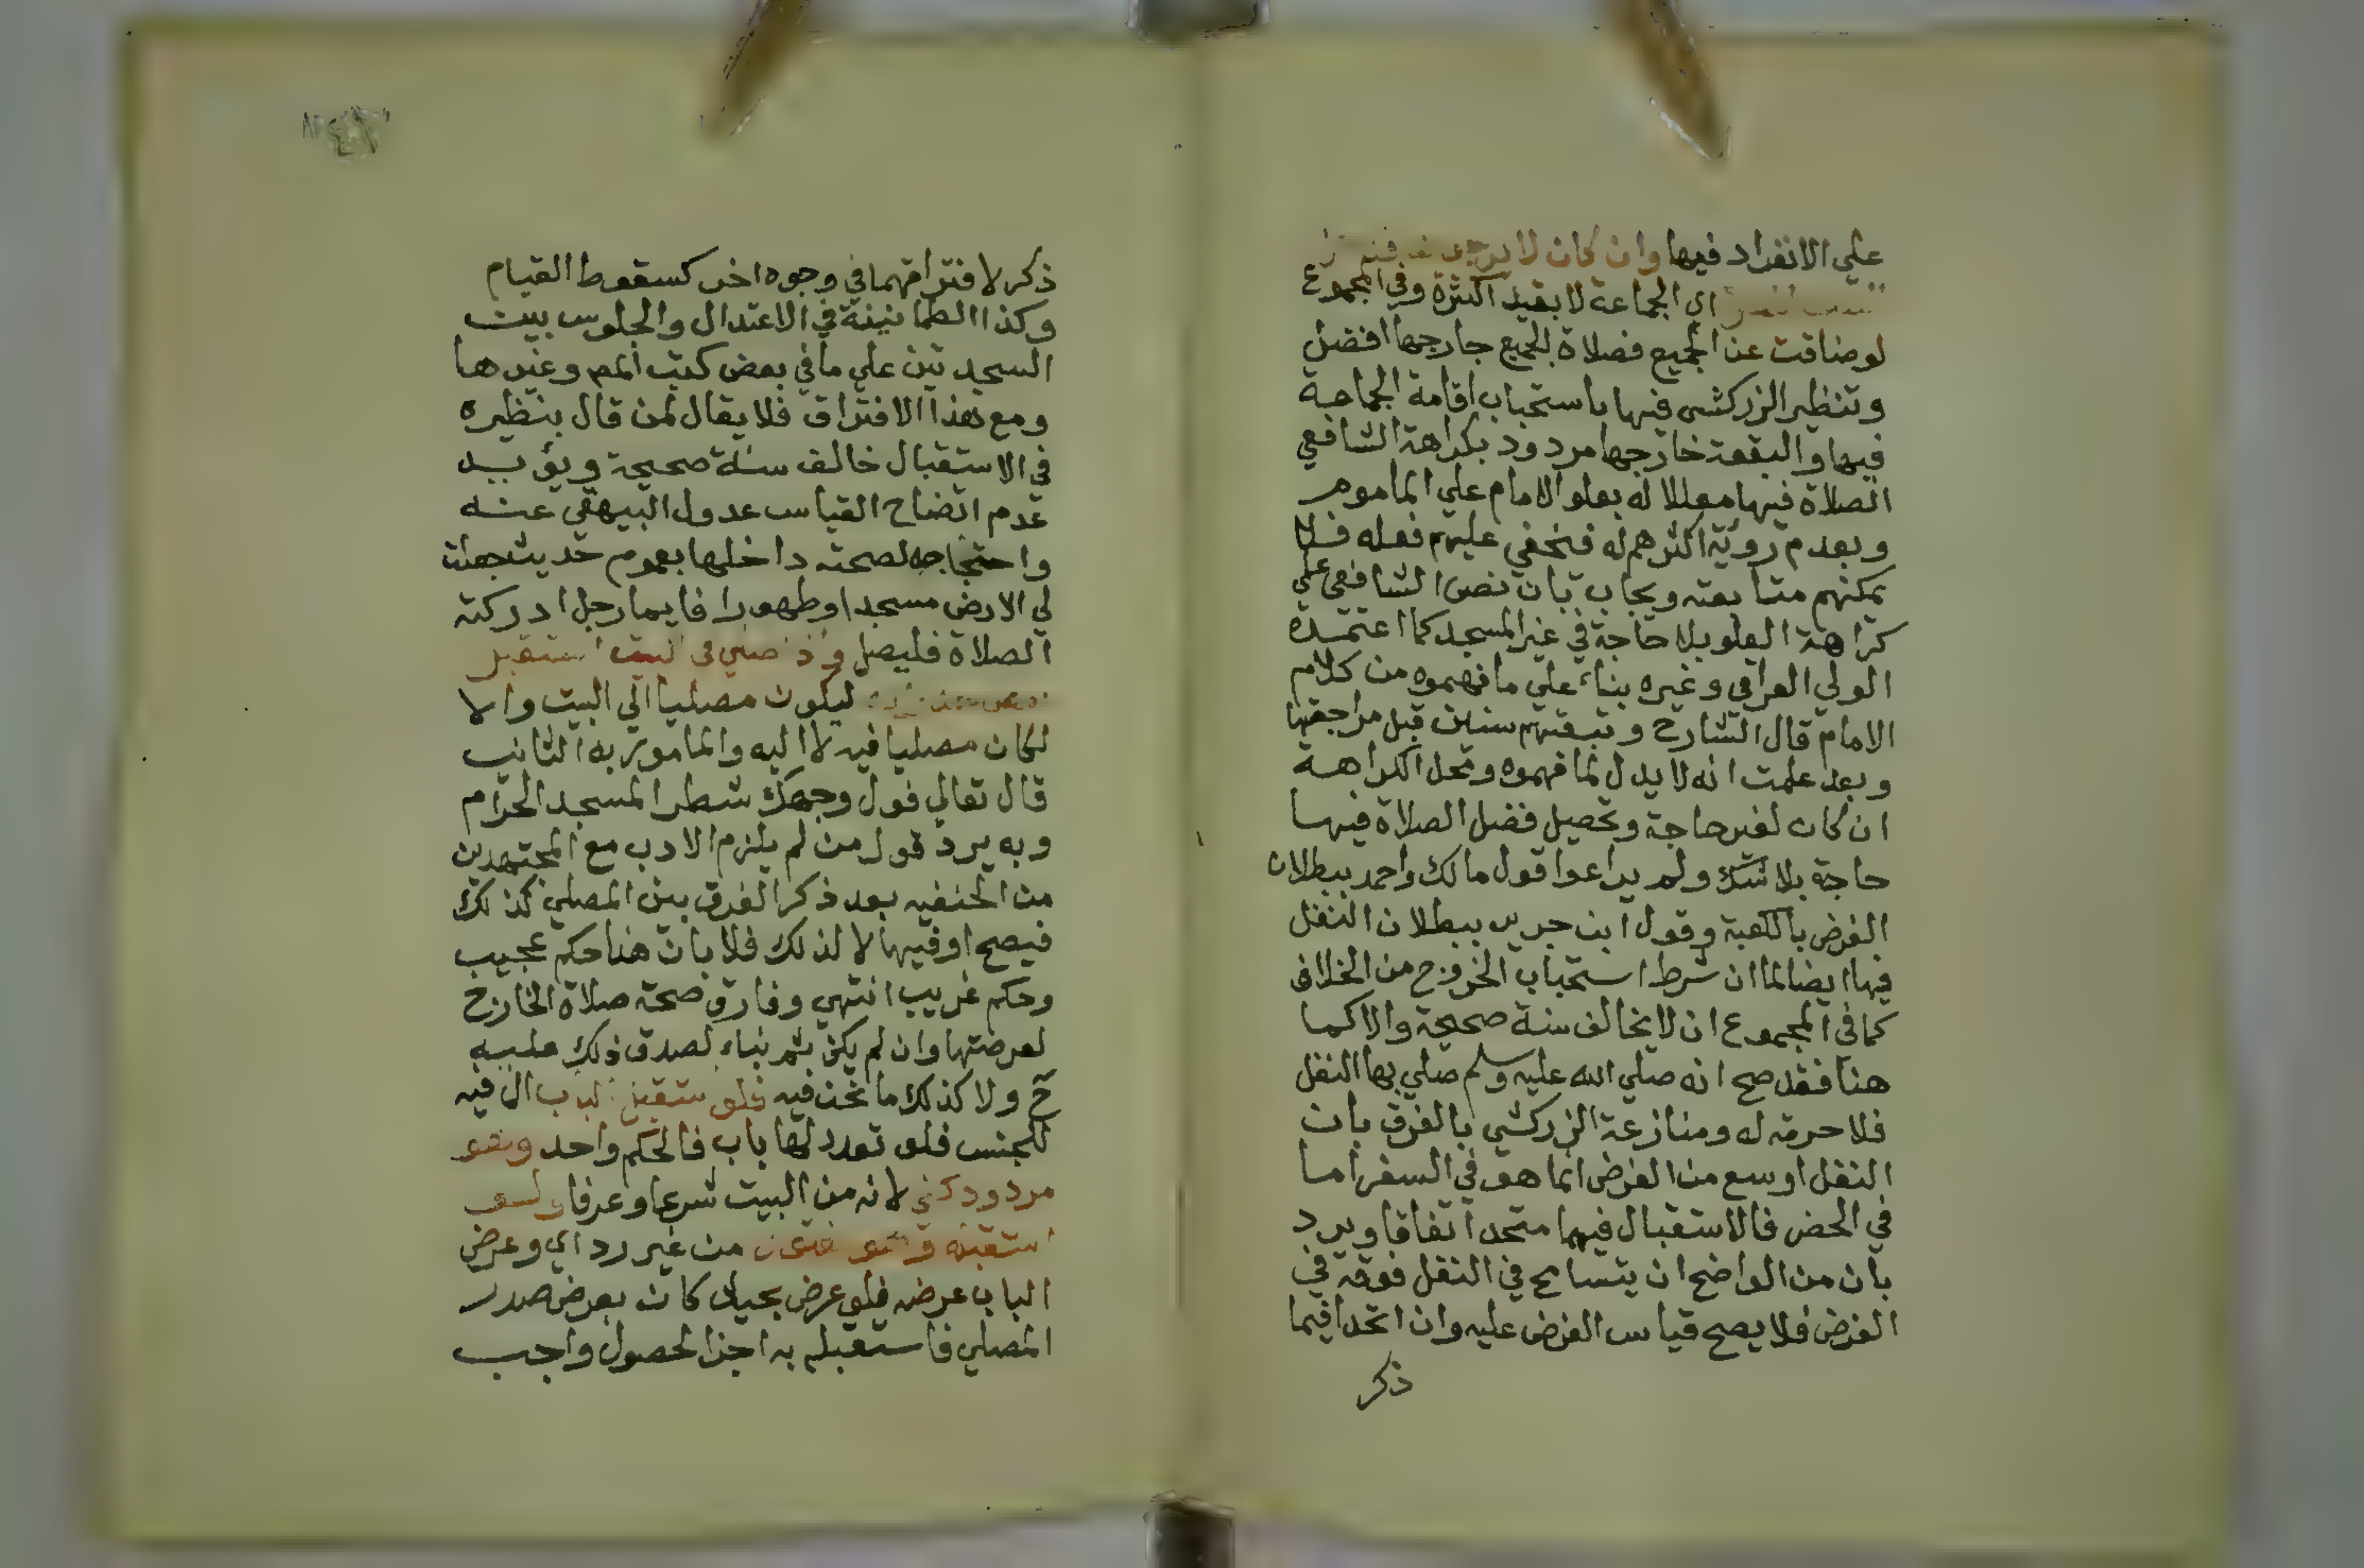 علي الانفراد فيها وان كان لا يرجو
اي الجماعة لا بقيد الكثرة وفي المجموع
لو ضاقت عن الجميع فصلاة الجميع خارجها افضل
وتنظير الزركشي فيها باستحباب اقامة الجماعة
فيها والبقعة خارجها مردود بكراهة الشافعي
الصلاة فيها معللا له بعلو الامام علي الماموم
وبعدم روية اكثرهم له فيخفي عليهم فعله فلا
يمكنهم متابعته ويجاب بان نص الشافعي علي
كراهة العلو بلا حاجة في غير المسجد كما اعتمده
الولي العراقي وغيره بناء علي ما فهموه من كلام
الامام قال الشارح وتبعتهم سنين قبل مراجعتها
وبعد علمت انه لا يدل لما فهموه ومحل الكراهة
ان كان لغير حاجة وتحصيل فضل الصلاة فيها
حاجة بلا شك ولم يراعوا قول مالك واحمد ببطلان
الفرض بالكعبة وقول ابن جرير ببطلان النفل
فيها ايضا لما ان شرط استحباب الخروج من الخلاف
كما في المجموع ان لا يخالف سنة صحيحة والا كما
هنا فقد صح انه صلي الله عليه وسلم صلي بها النفل
فلا حرمة له ومنازعة الزركشي بالفرق بان
النفل اوسع من الفرض انما هو في السفر اما
في الحضر فالاستقبال فيهما متحد اتفاقا ويرد
بان من الواضح ان يتسامح في النفل فوقه في
الفرض فلا يصح قياس الفرض عليه وان اتحدا فيما
ذكر
ذكر لافتراقهما في وجوه اخر كسقوط القيام
وكذا الطمانينة في الاعتدال والجلوس بين
السجدتين علي ما في بعض كتب المم وغيرها
ومع هذا الافتراق فلا يقال لمن قال بنظيره
في الاستقبال خالف سنة صحيحة ويؤيد
عدم اتضاح القياس عدول البيهقي عنه
واحتجاجه لصحته داخلها بعموم حديث جعلت
لي الارض مسجدا وطهورا فايما رجل ادركته
الصلاة فليصل واذا صلي في البيت استقبل
ليكون مصليا الي البيت والا
لكان مصليا فيه لا اليه والمامور به الثاني
قال تعالي فول وجهك شطر المسجد الحرام
وبه يرد قول من لم يلزم الادب مع المجتهدين
من الحنفيه بعد ذكر الفرق بين المصلي كذلك
فيصح او فيها لا لذلك فلا بان هنا حكم عجيب
وحكم غريب انتهي وفارق صحة صلاة الخارج
لعرصتها وان لم يكن ثم بناء لصدق ذلك عليه
ح ولا كذلك ما نحن فيه فلو استقبل الباب ال فيه
للجنس فلو تعدد لها باب فالحكم واحد وهو
مردود كفي لانه من البيت شرعا وعرفا ولو
استقبله وهو مفتوح من غير رد اي وعرض
الباب عرضه فلو عرض بحيال كان بعرض صدر
المصلي فاستقبله به اجزا لحصول واجب